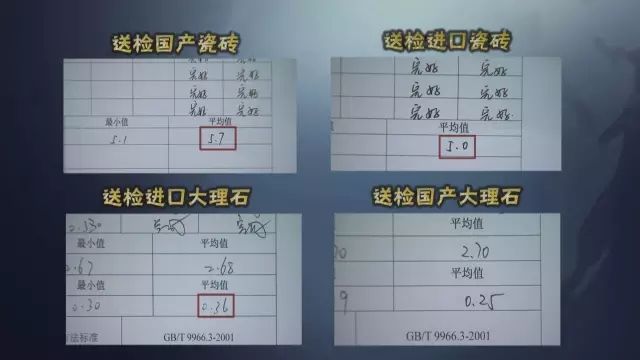 送检国产瓷砖
完好 完好
完好 完好
完好 完好
完好 完好
最小值 平均值
5.1 5.7
送检进口瓷砖
完好 完好
完好 完好
完好 完好
平均值
5.0
送检进口大理石
最小值 平均值
2.67 2.68
最小值 平均值
0.30 0.36
方法标准 GB/T 9966.3-2001
送检国产大理石
平均值
2.70
平均值
9 0.25
GB/T 9966.3-2001